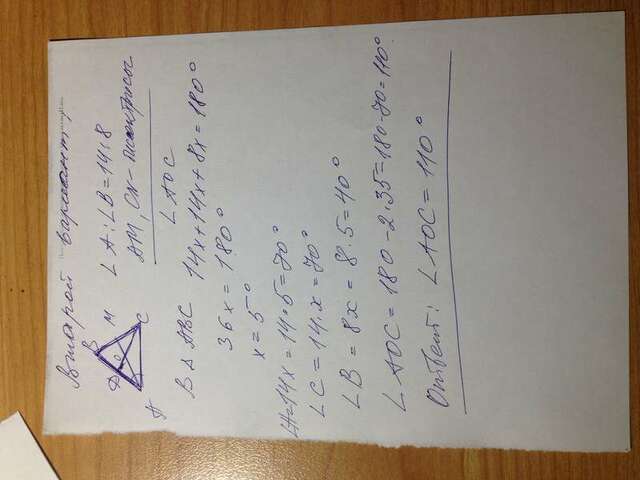 Второй вариант,
B
D
O
M
A
C
∠A:∠B=14:8
AM, CN - биссектрисы
∠AOC
В Δ ABC
14x+14x+8x=180°
36x=180°
x=5°
∠A=14x=14·5=70°
∠C=14·x=70°
∠B=8x=8·5=40°
∠AOC=180-2·35=180-70=110°
Ответ: ∠AOC=110°